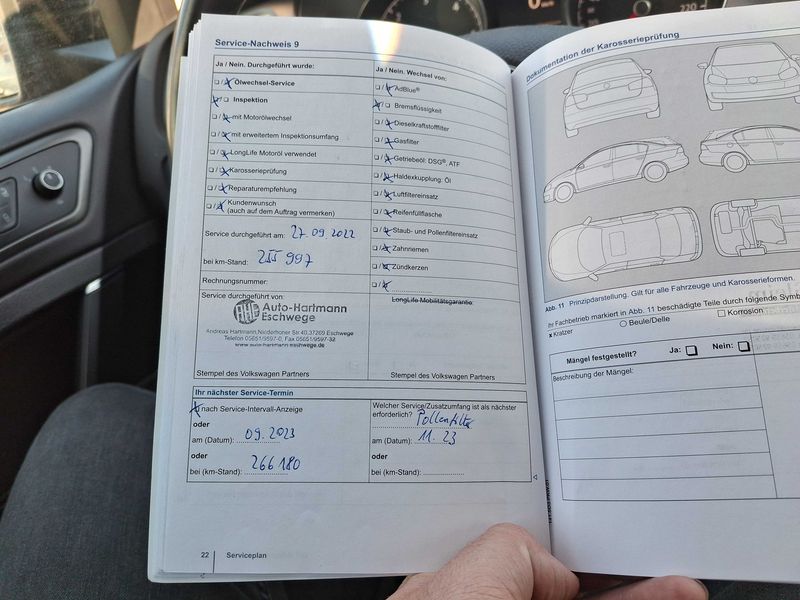 Service-Nachweis 9
Ja / Nein. Durchgeführt wurde:
Ölwechsel-Service
Inspektion
mit Motorölwechsel
mit erweitertem Inspektionsumfang
LongLife Motoröl verwendet
Karosserieprüfung
Reparaturempfehlung
Kundenwunsch
(auch auf dem Auftrag vermerken)
Service durchgeführt am: 27.09.2022
bei km-Stand: 255 997
Rechnungsnummer:
Service durchgeführt von:
AHE Auto-Hartmann
Eschwege
Andreas Hartmann, Niederhoner Str 40, 37269 Eschwege
Telefon 05651/9597-0, Fax 05651/9597-32
www.auto-hartmann-eschwege.de
Stempel des Volkswagen Partners
Ja / Nein. Wechsel von:
AdBlue®
Bremsflüssigkeit
Dieselkraftstofffilter
Gasfilter
Getriebeöl: DSG®, ATF
Haldexkupplung: Öl
Luftfiltereinsatz
Reifenfüllflasche
Staub- und Pollenfiltereinsatz
Zahnriemen
Zündkerzen
LongLife Mobilitätsgarantie:
Stempel des Volkswagen Partners
Ihr nächster Service-Termin
nach Service-Intervall-Anzeige
oder
am (Datum): 09.2023
oder
bei (km-Stand): 266 180
Welcher Service/Zusatzumfang ist als nächster
erforderlich? Pollenfilter
am (Datum): 11.23
oder
bei (km-Stand):
22 Serviceplan
Dokumentation der Karosserieprüfung
Abb. 11 Prinzipdarstellung. Gilt für alle Fahrzeuge und Karosserieformen.
Ihr Fachbetrieb markiert in Abb. 11 beschädigte Teile durch folgende Symb
x Kratzer
Beule/Delle
Korrosion
Mängel festgestellt? Ja: Nein:
Beschreibung der Mängel: